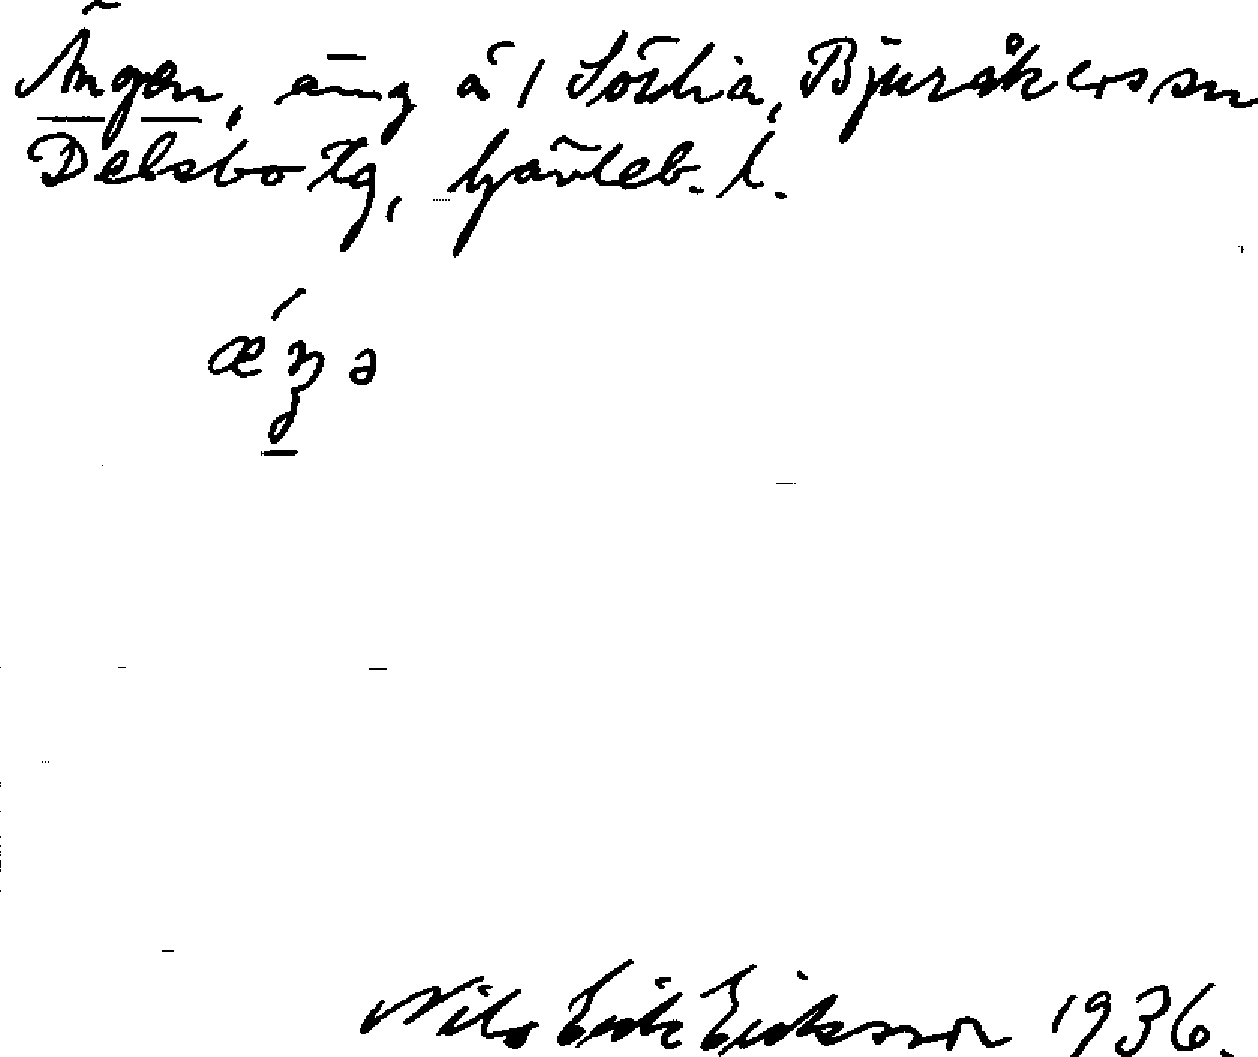 Ängen, äng å 1 Sörlia, Bjuråkers sn
Delsbo tg, Gävleb. l.
ǽŋə
Nils Erik Eriksson 1936.